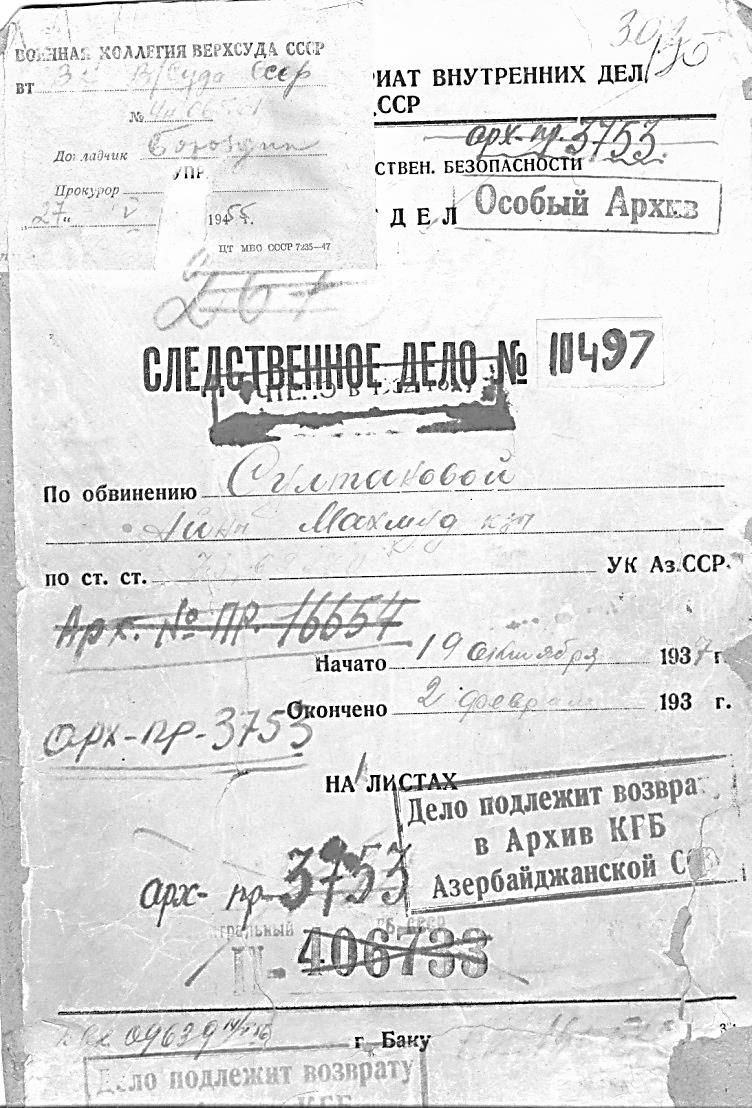 ВОЕННАЯ КОЛЛЕГИЯ ВЕРХСУДА СССР
ВТ В/Суда СССР
№
Докладчик
УПР.
Прокурор
"27" V 1955 г.
ЦТ МВО СССР 7235—47
РИАТ ВНУТРЕННИХ ДЕЛ
ССР
арх. пр. 3753
СТВЕН. БЕЗОПАСНОСТИ
ДЕЛ
Особый Архив
СЛЕДСТВЕННОЕ ДЕЛО № 10497
По обвинению Султановой
Айны Махмуд кзы
по ст. ст. УК Аз.ССР.
Арх. № ПР. 16654
Начато 19 октября 1937 г.
Окончено 2 февраля 193 г.
арх-пр-3753
НА ЛИСТАХ
Дело подлежит возвра
в Архив КГБ
Азербайджанской С
арх- пр-3753
тральный
IV-406733
09639
г. Баку
Дело подлежит возврату
КГБ